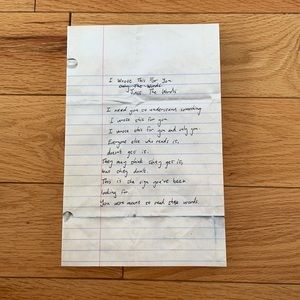 I Wrote This For You
Only The Words
I need you to understand something.
I wrote this for you.
I wrote this for you and only you.
Everyone else who reads it,
doesn't get it.
They may think they get it,
but they don't.
This is the sign you've been
looking for.
You were meant to read these words.